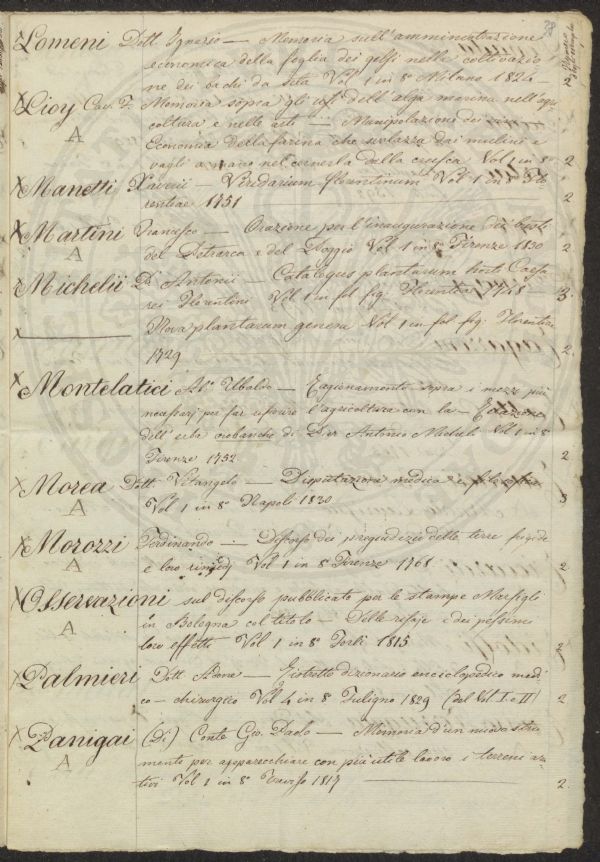 78
Lomeni Dott Ignazio — Memoria sull'amministrazione
economica della foglia dei gelsi nella coltivazio
ne dei bachi da seta Vol 1 in 8° Milano 1824 — 2
Lioy Cav. F. Memoria sopra gli usi dell'alga marina nell'agri
coltura e nelle arti — Manipolazione dei
A
Economia della farina che svolazza dai mulini e
vagli a mano nel cernerla dalla crusca Vol 1 in 8° 2
Manetti Xaverii — Viridarium florentinum Vol 1 in 8° Flo
rentiae 1751 2
Martini Francesco — Orazione per l'inaugurazione dei busti
A
del Petrarca e del Poggio Vol 1 in 8° Firenze 1830 2
Michelii P. Antonii — Catalogus plantarum horti Caesa
A
rei Florentini Vol 1 in fol fig. Florentiae 1748 3.
Nova plantarum genera Vol 1 in fol fig. Florentiae
1729 2.
Montelatici Ab. Ubaldo — Ragionamento sopra i mezzi più
necessarj per far rifiorire l'agricoltura con la Relazione
dell'erba orobanche di Pier Antonio Micheli Vol 1 in 8°
Firenze 1752 2
Morea Dott Vitangelo — Disputazioni medica
A
Vol 1 in 8° Napoli 1830
Morozzi Ferdinando — Discorso dei pregiudizio delle terre frigide
A
e loro rimedj Vol 1 in 8° Firenze 1768 2
Osservazioni sul discorso pubblicato per le stampe Marsigli
in Bologna col titolo — Delle risaje e dei pessimi
A
loro effetti Vol 1 in 8° Forlì 1815 2
Palmieri Dott Adone — Ristretto dizionario enciclopedico medi
A
co-chirurgico Vol 4 in 8° Fuligno 1829 (del Vol I e II) 2
Panigai (Di) Conte Gio. Paolo — Memoria d'un nuovo stru
A
mento per apparecchiare con più utile lavoro i terreni ar
tivi Vol 1 in 8° Treviso 1817 2.